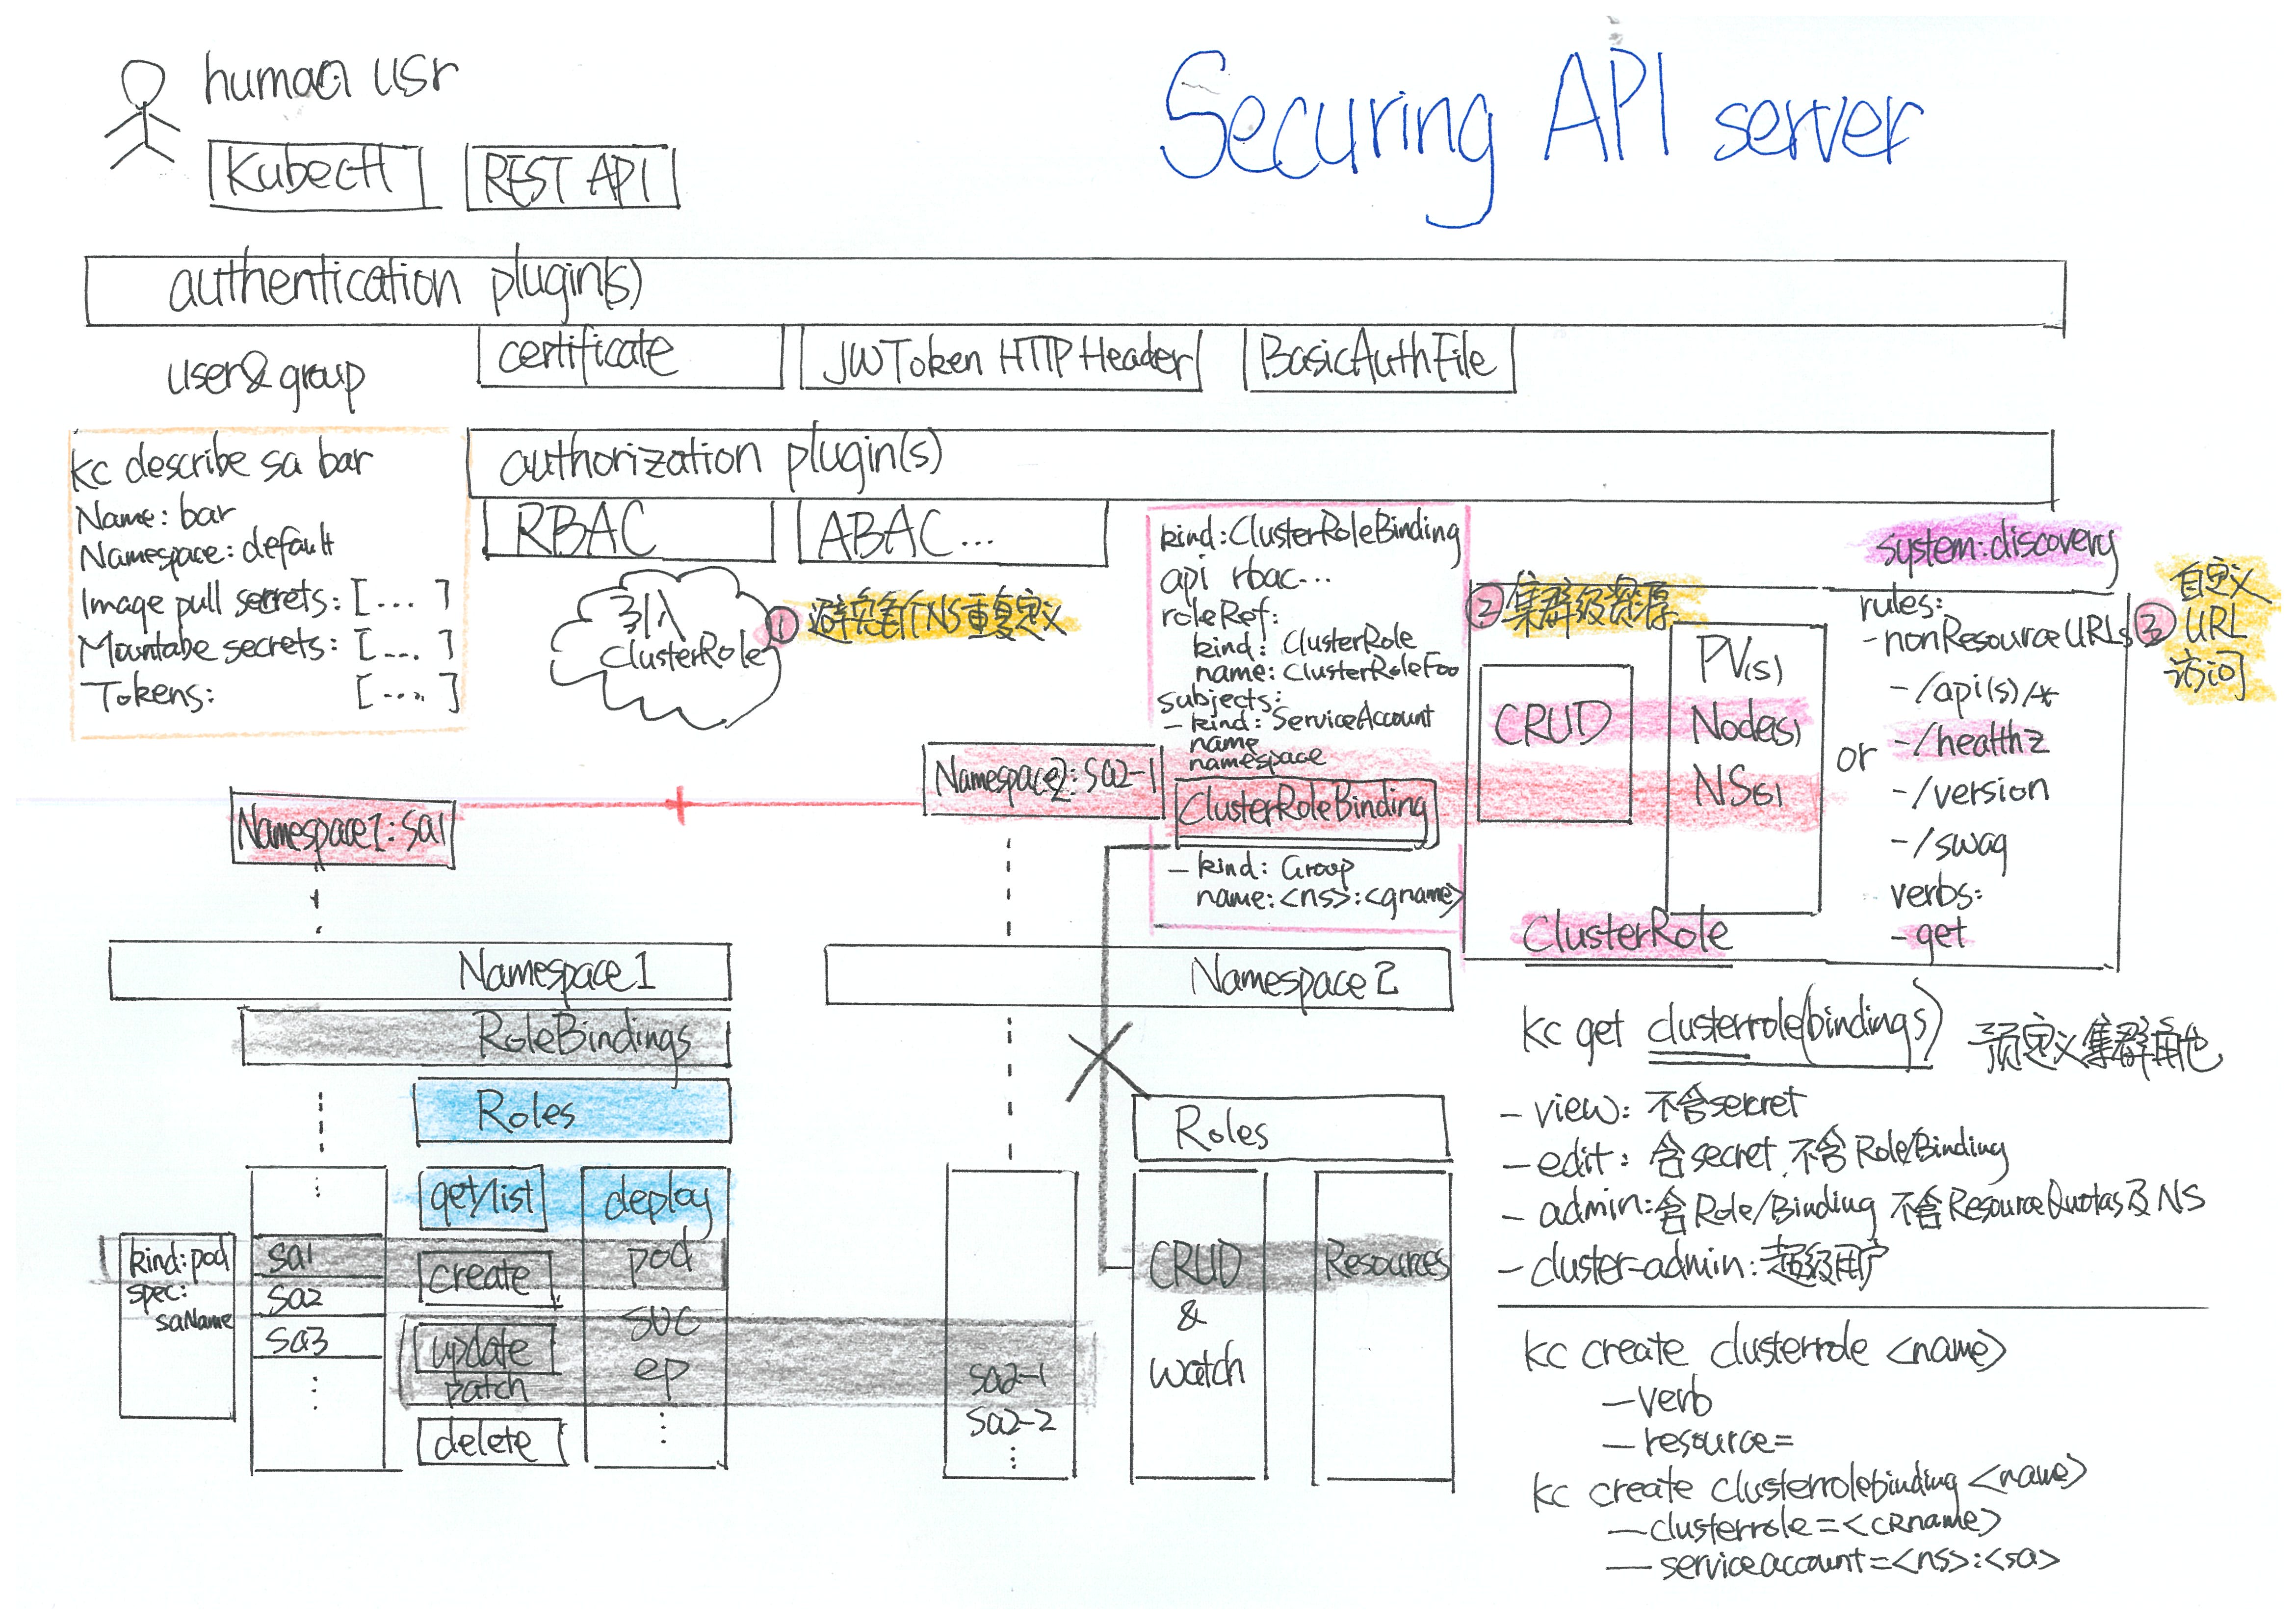 human usr
Securing API server
Kubectl
REST API
authentication plugin(s)
user&group
certificate
JWToken HTTP Header
BasicAuthFile
kc describe sa bar
Name: bar
Namespace: default
Image pull secrets: [... ]
Mountabe secrets: [... ]
Tokens: [....]
authorization plugin(s)
RBAC
ABAC...
引入
ClusterRole
① 避免各个NS重复定义
kind: ClusterRoleBinding
api rbac...
roleRef:
kind: ClusterRole
name: ClusterRoleFoo
subjects:
- kind: ServiceAccount
name
namespace
ClusterRoleBinding
- kind: Group
name: <ns>:<gname>
② 集群级资源
CRUD
PV(s)
Node(s)
NS(s)
or
ClusterRole
system:discovery
rules:
- nonResourceURLs
- /api(s)/*
- /healthz
- /version
- /swag
verbs:
- get
③ 自定义
URL
访问
Namespace1: sa1
Namespace2: sa2-1
Namespace1
RoleBindings
Roles
get/list
create
update
patch
delete
deploy
pod
svc
ep
⋮
kind: pod
spec:
saName
⋮
sa1
sa2
sa3
⋮
Namespace 2
Roles
sa2-1
sa2-2
⋮
CRUD
&
watch
Resources
kc get clusterrole(bindings) 预定义集群角色
- view: 不含secret
- edit: 含secret, 不含Role/Binding
- admin: 含Role/Binding 不含ResourceQuotas及NS
- cluster-admin: 超级用户
kc create clusterrole <name>
—verb
—resource=
kc create clusterrolebinding <name>
—clusterrole=<CRname>
—serviceaccount=<ns>:<sa>